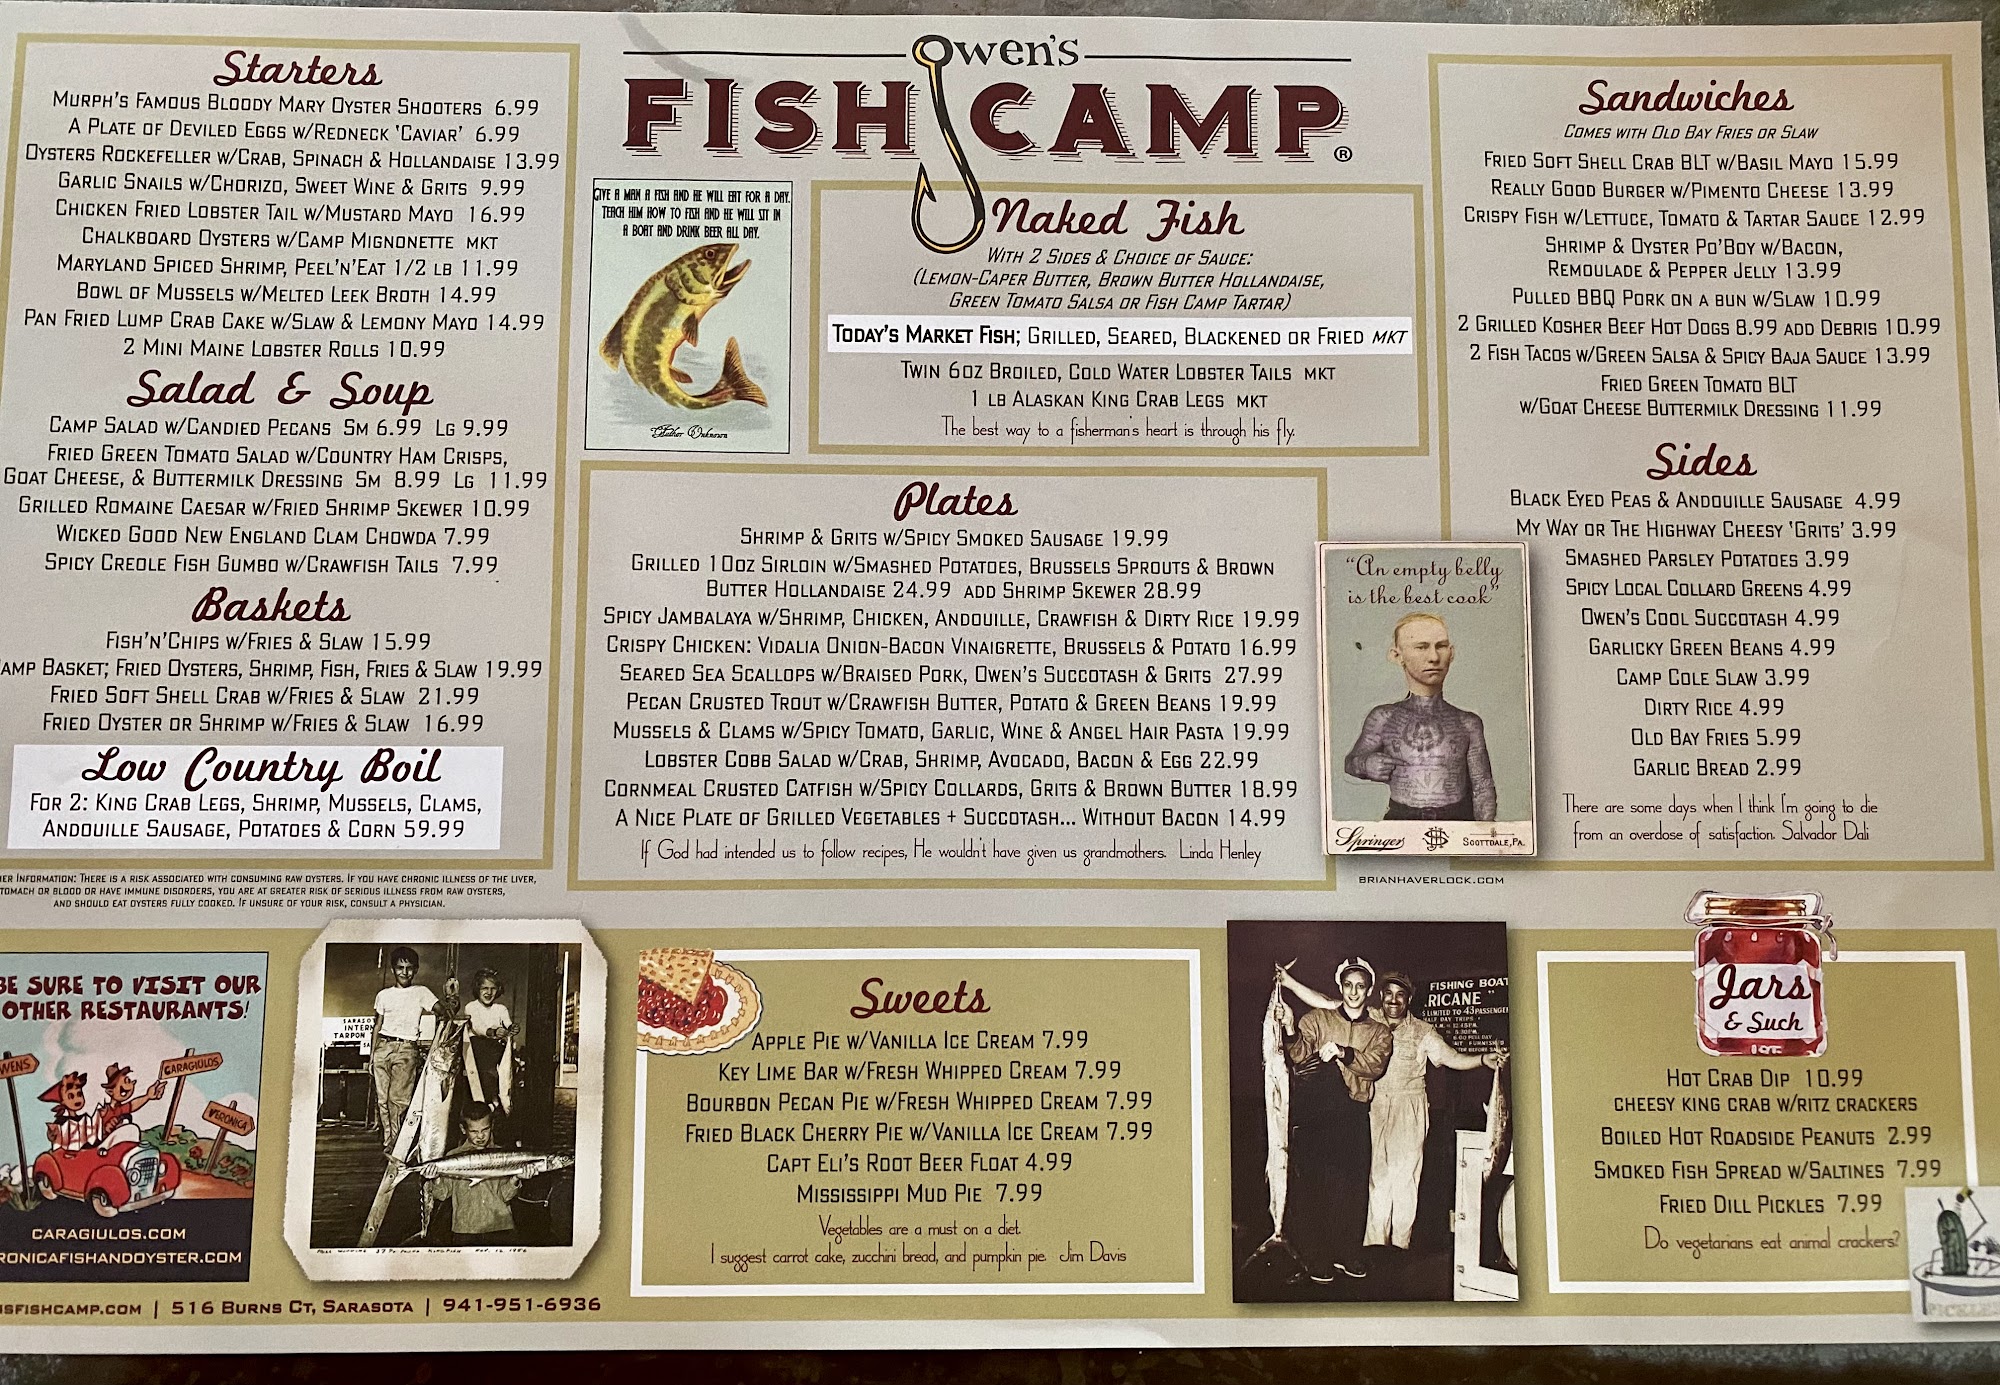 Owen's
FISH CAMP ®
Starters
MURPH'S FAMOUS BLOODY MARY OYSTER SHOOTERS 6.99
A PLATE OF DEVILED EGGS W/REDNECK 'CAVIAR' 6.99
OYSTERS ROCKEFELLER W/CRAB, SPINACH & HOLLANDAISE 13.99
GARLIC SNAILS W/CHORIZO, SWEET WINE & GRITS 9.99
CHICKEN FRIED LOBSTER TAIL W/MUSTARD MAYO 16.99
CHALKBOARD OYSTERS W/CAMP MIGNONETTE MKT
MARYLAND SPICED SHRIMP, PEEL'N'EAT 1/2 LB 11.99
BOWL OF MUSSELS W/MELTED LEEK BROTH 14.99
PAN FRIED LUMP CRAB CAKE W/SLAW & LEMONY MAYO 14.99
2 MINI MAINE LOBSTER ROLLS 10.99
Salad & Soup
CAMP SALAD W/CANDIED PECANS SM 6.99 LG 9.99
FRIED GREEN TOMATO SALAD W/COUNTRY HAM CRISPS,
GOAT CHEESE, & BUTTERMILK DRESSING SM 8.99 LG 11.99
GRILLED ROMAINE CAESAR W/FRIED SHRIMP SKEWER 10.99
WICKED GOOD NEW ENGLAND CLAM CHOWDA 7.99
SPICY CREOLE FISH GUMBO W/CRAWFISH TAILS 7.99
Baskets
FISH'N'CHIPS W/FRIES & SLAW 15.99
AMP BASKET; FRIED OYSTERS, SHRIMP, FISH, FRIES & SLAW 19.99
FRIED SOFT SHELL CRAB W/FRIES & SLAW 21.99
FRIED OYSTER OR SHRIMP W/FRIES & SLAW 16.99
Low Country Boil
FOR 2: KING CRAB LEGS, SHRIMP, MUSSELS, CLAMS,
ANDOUILLE SAUSAGE, POTATOES & CORN 59.99
ER INFORMATION: THERE IS A RISK ASSOCIATED WITH CONSUMING RAW OYSTERS. IF YOU HAVE CHRONIC ILLNESS OF THE LIVER,
TOMACH OR BLOOD OR HAVE IMMUNE DISORDERS, YOU ARE AT GREATER RISK OF SERIOUS ILLNESS FROM RAW OYSTERS,
AND SHOULD EAT OYSTERS FULLY COOKED. IF UNSURE OF YOUR RISK, CONSULT A PHYSICIAN.
GIVE A MAN A FISH AND HE WILL EAT FOR A DAY.
TEACH HIM HOW TO FISH AND HE WILL SIT IN
A BOAT AND DRINK BEER ALL DAY.
Author Unknown
Naked Fish
WITH 2 SIDES & CHOICE OF SAUCE:
(LEMON-CAPER BUTTER, BROWN BUTTER HOLLANDAISE,
GREEN TOMATO SALSA OR FISH CAMP TARTAR)
TODAY'S MARKET FISH; GRILLED, SEARED, BLACKENED OR FRIED MKT
TWIN 6OZ BROILED, COLD WATER LOBSTER TAILS MKT
1 LB ALASKAN KING CRAB LEGS MKT
The best way to a fisherman's heart is through his fly.
Plates
SHRIMP & GRITS W/SPICY SMOKED SAUSAGE 19.99
GRILLED 10OZ SIRLOIN W/SMASHED POTATOES, BRUSSELS SPROUTS & BROWN
BUTTER HOLLANDAISE 24.99 ADD SHRIMP SKEWER 28.99
SPICY JAMBALAYA W/SHRIMP, CHICKEN, ANDOUILLE, CRAWFISH & DIRTY RICE 19.99
CRISPY CHICKEN: VIDALIA ONION-BACON VINAIGRETTE, BRUSSELS & POTATO 16.99
SEARED SEA SCALLOPS W/BRAISED PORK, OWEN'S SUCCOTASH & GRITS 27.99
PECAN CRUSTED TROUT W/CRAWFISH BUTTER, POTATO & GREEN BEANS 19.99
MUSSELS & CLAMS W/SPICY TOMATO, GARLIC, WINE & ANGEL HAIR PASTA 19.99
LOBSTER COBB SALAD W/CRAB, SHRIMP, AVOCADO, BACON & EGG 22.99
CORNMEAL CRUSTED CATFISH W/SPICY COLLARDS, GRITS & BROWN BUTTER 18.99
A NICE PLATE OF GRILLED VEGETABLES + SUCCOTASH... WITHOUT BACON 14.99
If God had intended us to follow recipes, He wouldn't have given us grandmothers. Linda Henley
"An empty belly
is the best cook"
Springer
SCOTTDALE, PA.
BRIANHAVERLOCK.COM
Sandwiches
COMES WITH OLD BAY FRIES OR SLAW
FRIED SOFT SHELL CRAB BLT W/BASIL MAYO 15.99
REALLY GOOD BURGER W/PIMENTO CHEESE 13.99
CRISPY FISH W/LETTUCE, TOMATO & TARTAR SAUCE 12.99
SHRIMP & OYSTER PO'BOY W/BACON,
REMOULADE & PEPPER JELLY 13.99
PULLED BBQ PORK ON A BUN W/SLAW 10.99
2 GRILLED KOSHER BEEF HOT DOGS 8.99 ADD DEBRIS 10.99
2 FISH TACOS W/GREEN SALSA & SPICY BAJA SAUCE 13.99
FRIED GREEN TOMATO BLT
W/GOAT CHEESE BUTTERMILK DRESSING 11.99
Sides
BLACK EYED PEAS & ANDOUILLE SAUSAGE 4.99
MY WAY OR THE HIGHWAY CHEESY 'GRITS' 3.99
SMASHED PARSLEY POTATOES 3.99
SPICY LOCAL COLLARD GREENS 4.99
OWEN'S COOL SUCCOTASH 4.99
GARLICKY GREEN BEANS 4.99
CAMP COLE SLAW 3.99
DIRTY RICE 4.99
OLD BAY FRIES 5.99
GARLIC BREAD 2.99
There are some days when I think I'm going to die
from an overdose of satisfaction. Salvador Dali
BE SURE TO VISIT OUR
OTHER RESTAURANTS!
WENS
CARAGIULOS
VERONICA
CARAGIULOS.COM
RONICAFISHANDOYSTER.COM
SARASO
INTERN
TARPON
SFISHCAMP.COM | 516 BURNS CT, SARASOTA | 941-951-6936
Sweets
APPLE PIE W/VANILLA ICE CREAM 7.99
KEY LIME BAR W/FRESH WHIPPED CREAM 7.99
BOURBON PECAN PIE W/FRESH WHIPPED CREAM 7.99
FRIED BLACK CHERRY PIE W/VANILLA ICE CREAM 7.99
CAPT ELI'S ROOT BEER FLOAT 4.99
MISSISSIPPI MUD PIE 7.99
Vegetables are a must on a diet.
I suggest carrot cake, zucchini bread, and pumpkin pie. Jim Davis
FISHING BOAT
RICANE"
LIMITED TO 43 PASSENGER
Jars
& Such
HOT CRAB DIP 10.99
CHEESY KING CRAB W/RITZ CRACKERS
BOILED HOT ROADSIDE PEANUTS 2.99
SMOKED FISH SPREAD W/SALTINES 7.99
FRIED DILL PICKLES 7.99
Do vegetarians eat animal crackers?